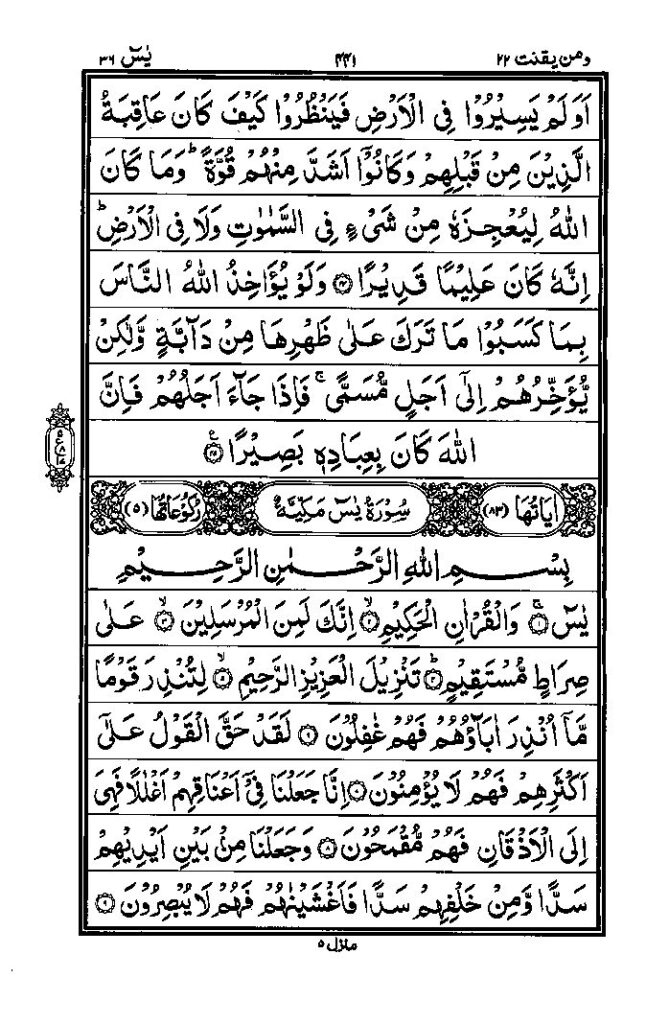 ومن يقنت ٢٢ ٤٤١ يٰسٓ ٣٦
اَوَلَمْ يَسِيْرُوْا فِى الْاَرْضِ فَيَنْظُرُوْا كَيْفَ كَانَ عَاقِبَةُ
الَّذِيْنَ مِنْ قَبْلِهِمْ وَكَانُوْٓا اَشَدَّ مِنْهُمْ قُوَّةً ؕ وَمَا كَانَ
اللّٰهُ لِيُعْجِزَهٗ مِنْ شَىْءٍ فِى السَّمٰوٰتِ وَلَا فِى الْاَرْضِ ؕ
اِنَّهٗ كَانَ عَلِيْمًا قَدِيْرًا ﴿٤٤﴾ وَلَوْ يُؤَاخِذُ اللّٰهُ النَّاسَ
بِمَا كَسَبُوْا مَا تَرَكَ عَلٰى ظَهْرِهَا مِنْ دَآبَّةٍ وَّلٰكِنْ
يُّؤَخِّرُهُمْ اِلٰٓى اَجَلٍ مُّسَمًّى ۚ فَاِذَا جَآءَ اَجَلُهُمْ فَاِنَّ
اللّٰهَ كَانَ بِعِبَادِهٖ بَصِيْرًا ﴿٤٥﴾
اٰيَاتُهَا (٨٣) سُوْرَةُ يٰسٓ مَكِّيَّةٌ رُكُوْعَاتُهَا (٥)
بِسْمِ اللّٰهِ الرَّحْمٰنِ الرَّحِيْمِ
يٰسٓ ۚ ﴿١﴾ وَالْقُرْاٰنِ الْحَكِيْمِ ۙ ﴿٢﴾ اِنَّكَ لَمِنَ الْمُرْسَلِيْنَ ۙ ﴿٣﴾ عَلٰى
صِرَاطٍ مُّسْتَقِيْمٍ ؕ ﴿٤﴾ تَنْزِيْلَ الْعَزِيْزِ الرَّحِيْمِ ۙ ﴿٥﴾ لِتُنْذِرَ قَوْمًا
مَّآ اُنْذِرَ اٰبَآؤُهُمْ فَهُمْ غٰفِلُوْنَ ﴿٦﴾ لَقَدْ حَقَّ الْقَوْلُ عَلٰٓى
اَكْثَرِهِمْ فَهُمْ لَا يُؤْمِنُوْنَ ﴿٧﴾ اِنَّا جَعَلْنَا فِىْٓ اَعْنَاقِهِمْ اَغْلٰلًا فَهِىَ
اِلَى الْاَذْقَانِ فَهُمْ مُّقْمَحُوْنَ ﴿٨﴾ وَجَعَلْنَا مِنْۢ بَيْنِ اَيْدِيْهِمْ
سَدًّا وَّمِنْ خَلْفِهِمْ سَدًّا فَاَغْشَيْنٰهُمْ فَهُمْ لَا يُبْصِرُوْنَ ﴿٩﴾
منزل ٥